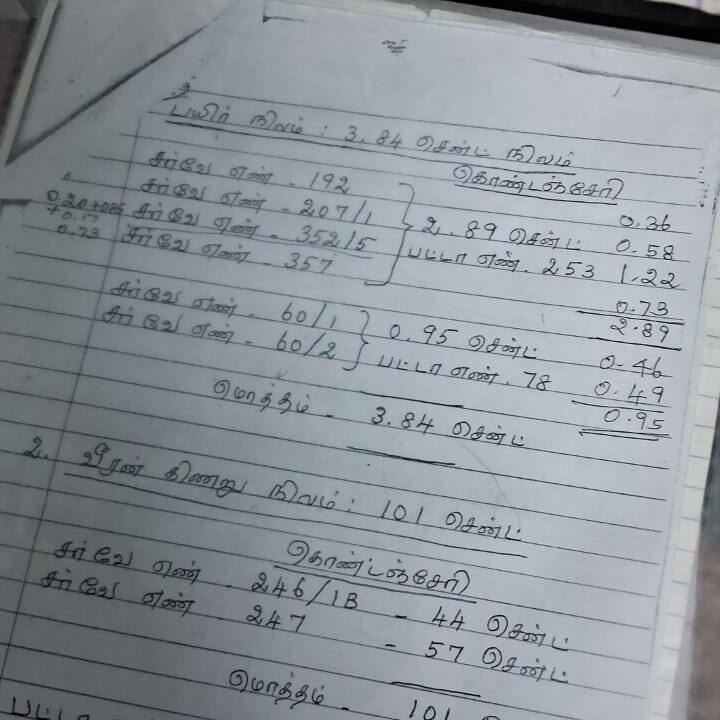 பயிர் நிலம் : 3.84 சென்ட் நிலம்
கொண்டஞ்சேரி
சர்வே எண் - 192 0.36
சர்வே எண் - 207/1 2.89 சென்ட் 0.58
0.20 + 0.17 சர்வே எண் - 352/5 பட்டா எண். 253 1.22
0.73 சர்வே எண் - 357 0.73
2.89
சர்வே எண் - 60/1 0.95 சென்ட் 0.46
சர்வே எண் - 60/2 பட்டா எண். 78 0.49
மொத்தம் - 3.84 சென்ட் 0.95
2. வீரன் கிணறு நிலம் : 101 சென்ட்
கொண்டஞ்சேரி
சர்வே எண் - 246/1B - 44 சென்ட்
சர்வே எண் - 247 - 57 சென்ட்
மொத்தம் - 101